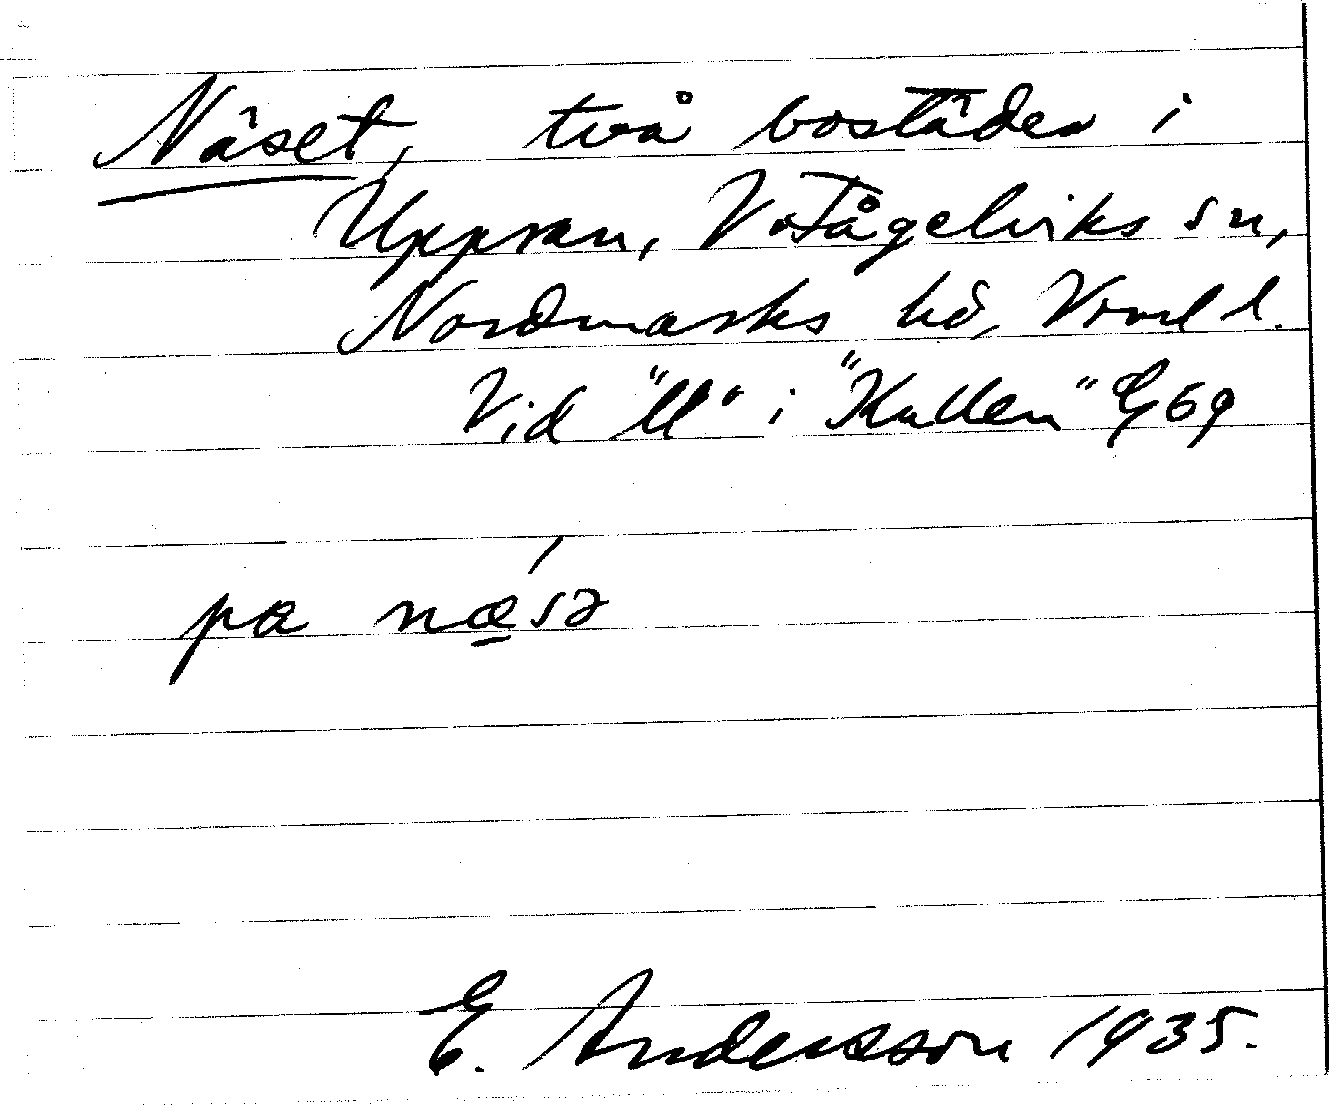 Näset, två bostäder i
Uppsan, V. Fågelviks sn,
Nordmarks hd, Vrml l.
Vid "ll" i "Kullen" G69
pa næ̱´sə
E. Andersson 1935.